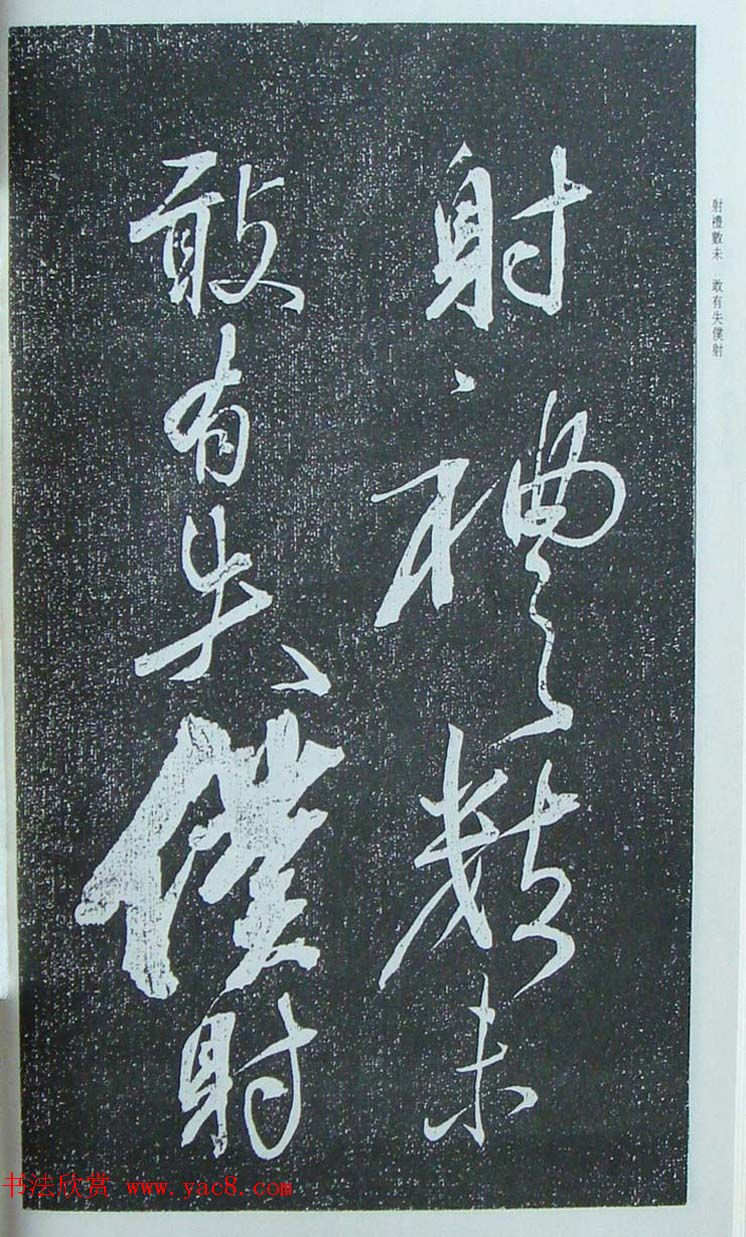 射禮數未
敢有失僕射
射禮數未 敢有失僕射
书法欣赏 www.yac8.com